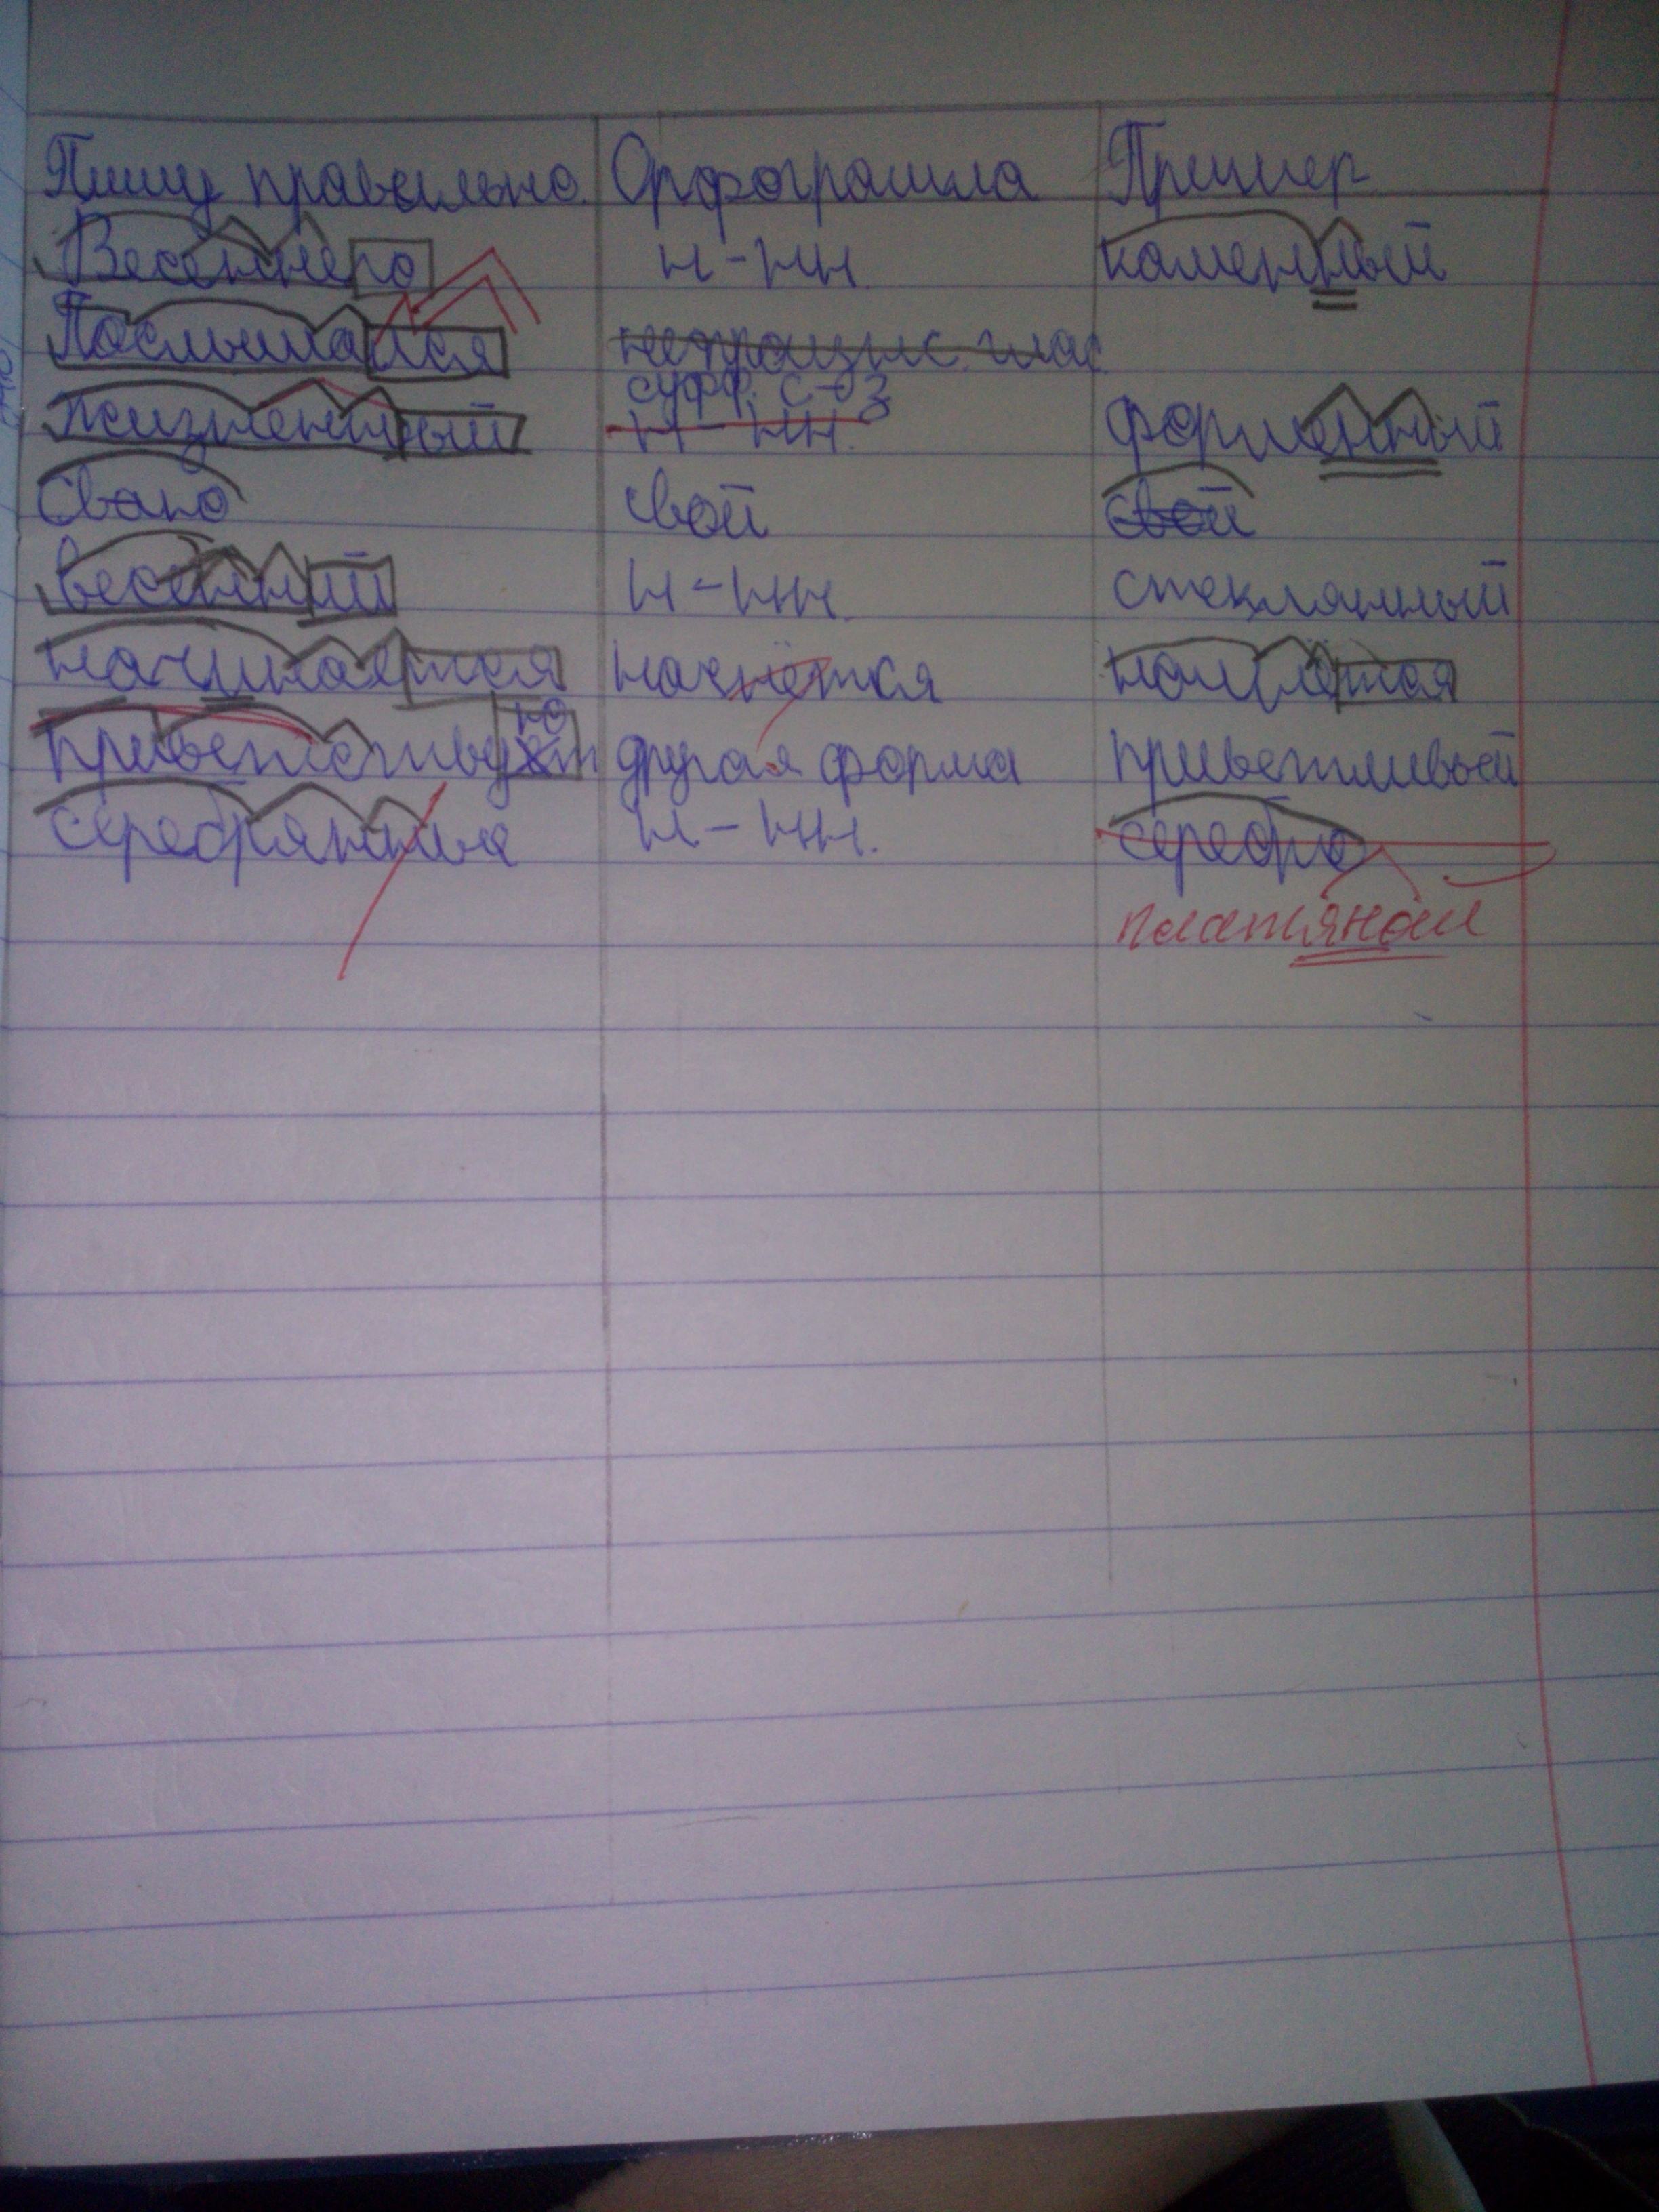 Пишу правильно. Орфограмма Пример
Весеннего н-нн. каменный
Послышался непроизнс. глас
суфф. с-з
Жизненный н-нн. форменный
Свою свой свой
весенний н-нн. стеклянный
начинается начнётся
приветствуют другая форма приветливый
ю
н-нн. серебро
платяной